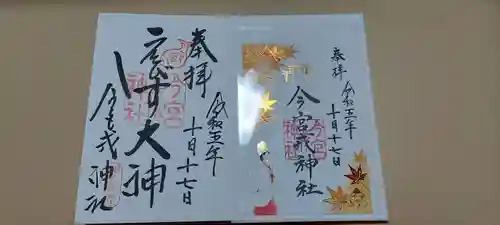 奉拝
令和五年
十月十七日
今宮戎神社
奉拝
令和五年
十月十七日
ゑびす大神
今宮戎神社